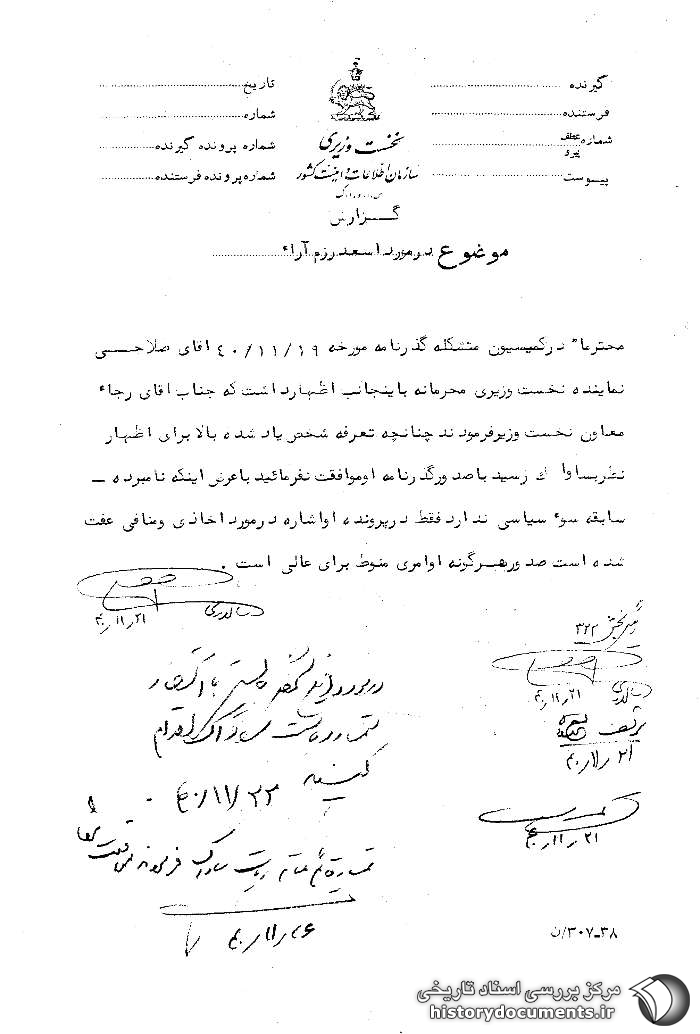 گیرنده
فرستنده
شماره عطف پیرو
پیوست
نخست وزیری
سازمان اطلاعات و امنیت کشور
س.ا.و.ا.ک
تاریخ
شماره
شماره پرونده گیرنده
شماره پرونده فرستنده
گزارش
موضوع در مورد اسعد رزم آراء
محترما" در کمیسیون متشکله گذرنامه مورخه ۴۰/۱۱/۱۹ آقای صلاحی
نماینده نخست وزیری محرمانه باینجانب اظهارداشت که جناب اقای رجاء
معاون نخست وزیرفرمودند چنانچه تعرفه شخص یاد شده بالا برای اظهار
نظربساواک رسید باصدورگذرنامه اوموافقت نفرمائید باعرض اینکه نامبرده –
سابقه سوء سیاسی ندارد فقط درپرونده اواشاره درمورد اخاذی ومنافی عفت
شده است صدورهرگونه اوامری منوط برای عالی است .
سالاری
۴۰/۱۱/۲۱
رئیس بخش ۳۲۲
سالاری
۴۰/۱۱/۲۱
۴۰/۱۱/۲۱
۴۰/۱۱/۲۱
در مورد
تیمسار ریاست ساواک اقدام
کنید
۴۰/۱۱/۲۳
تیمسار ریاست ساواک فرمودند
۴۰/۱۱/۲۶
۳۰۷-۳۸/ن
مرکز بررسی اسناد تاریخی
historydocuments.ir